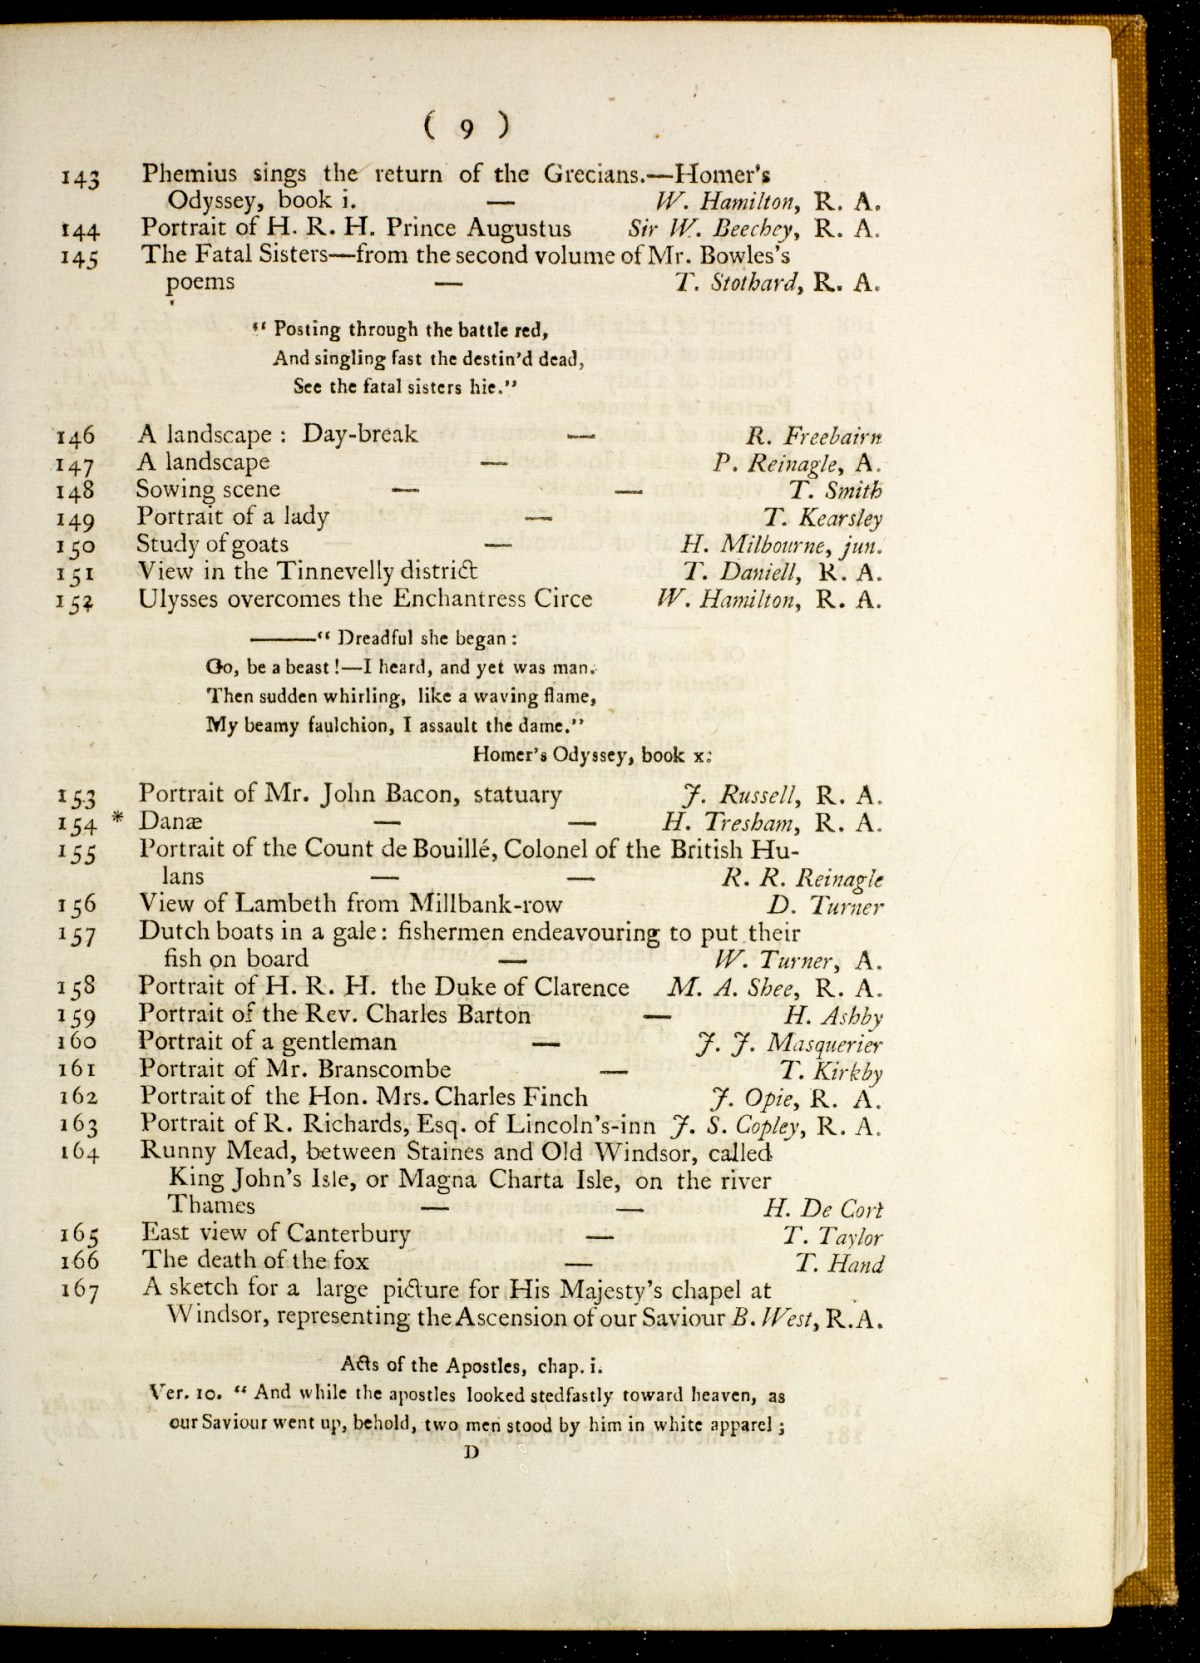 ( 9 )
143 Phemius sings the return of the Grecians.—Homer's
Odyssey, book i. — W. Hamilton, R. A.
144 Portrait of H. R. H. Prince Augustus Sir W. Beechey, R. A.
145 The Fatal Sisters—from the second volume of Mr. Bowles's
poems — T. Stothard, R. A.
“ Posting through the battle red,
And singling fast the destin'd dead,
See the fatal sisters hie.”
146 A landscape : Day-break — R. Freebairn
147 A landscape — P. Reinagle, A.
148 Sowing scene — — T. Smith
149 Portrait of a lady — T. Kearsley
150 Study of goats — H. Milbourne, jun.
151 View in the Tinnevelly district T. Daniell, R. A.
152 Ulysses overcomes the Enchantress Circe W. Hamilton, R. A.
———“ Dreadful she began :
Go, be a beast !—I heard, and yet was man.
Then sudden whirling, like a waving flame,
My beamy faulchion, I assault the dame.”
Homer's Odyssey, book x.
153 Portrait of Mr. John Bacon, statuary J. Russell, R. A.
154 * Danæ — — H. Tresham, R. A.
155 Portrait of the Count de Bouillé, Colonel of the British Hu-
lans — — R. R. Reinagle
156 View of Lambeth from Millbank-row D. Turner
157 Dutch boats in a gale : fishermen endeavouring to put their
fish on board — W. Turner, A.
158 Portrait of H. R. H. the Duke of Clarence M. A. Shee, R. A.
159 Portrait of the Rev. Charles Barton — H. Ashby
160 Portrait of a gentleman — J. J. Masquerier
161 Portrait of Mr. Branscombe — T. Kirkby
162 Portrait of the Hon. Mrs. Charles Finch J. Opie, R. A.
163 Portrait of R. Richards, Esq. of Lincoln's-inn J. S. Copley, R. A.
164 Runny Mead, between Staines and Old Windsor, called
King John's Isle, or Magna Charta Isle, on the river
Thames — — H. De Cort
165 East view of Canterbury — T. Taylor
166 The death of the fox — T. Hand
167 A sketch for a large picture for His Majesty's chapel at
Windsor, representing the Ascension of our Saviour B. West, R.A.
Acts of the Apostles, chap. i.
Ver. 10. “ And while the apostles looked stedfastly toward heaven, as
our Saviour went up, behold, two men stood by him in white apparel ;
D